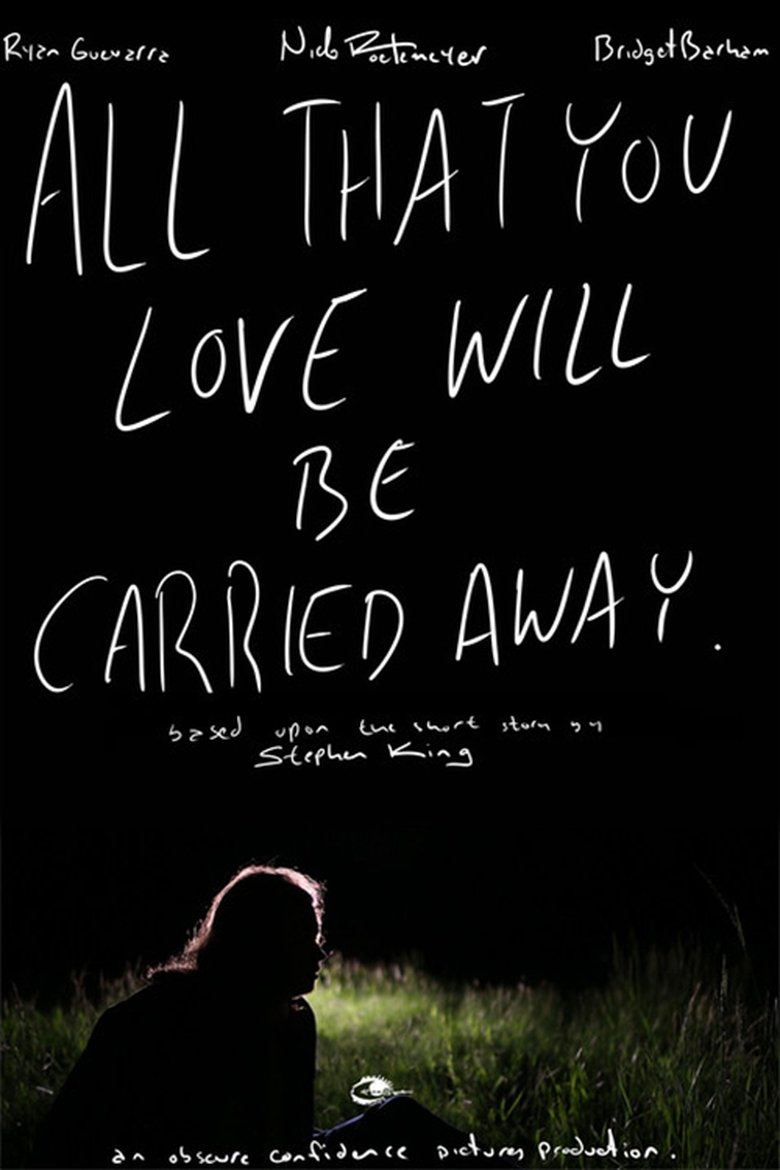 Ryan Guevarra Nico Roetemeyer Bridget Barham
ALL THAT YOU
LOVE WILL
BE
CARRIED AWAY.
based upon the short story by
Stephen King
an obscure confidence pictures production.